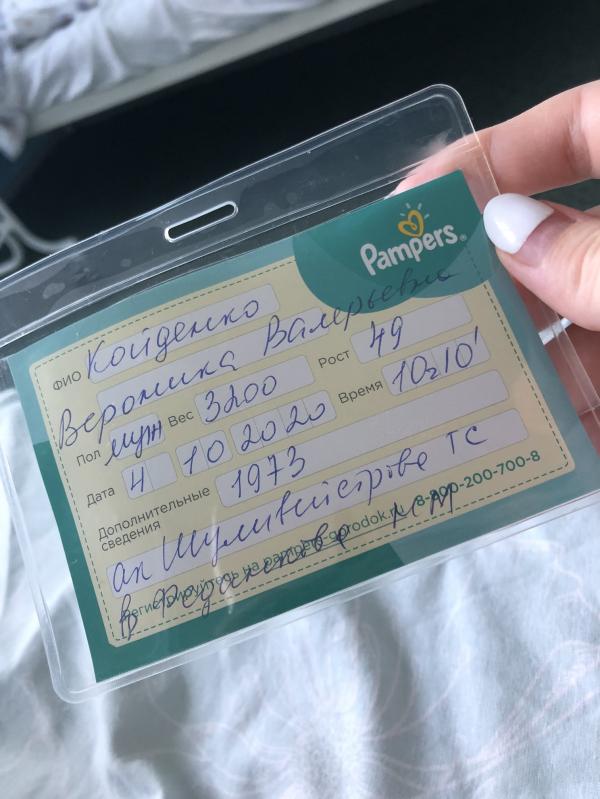 Pampers®
ФИО Койденко
Вероника Валерьевна
Пол Вес 3200 Рост 49
Дата 4 10 2020 Время 10ч10'
Дополнительные сведения 1973
ак ТС
Регистрируйтесь на pampers-gorodok.ru 8-800-200-700-8
В ММ